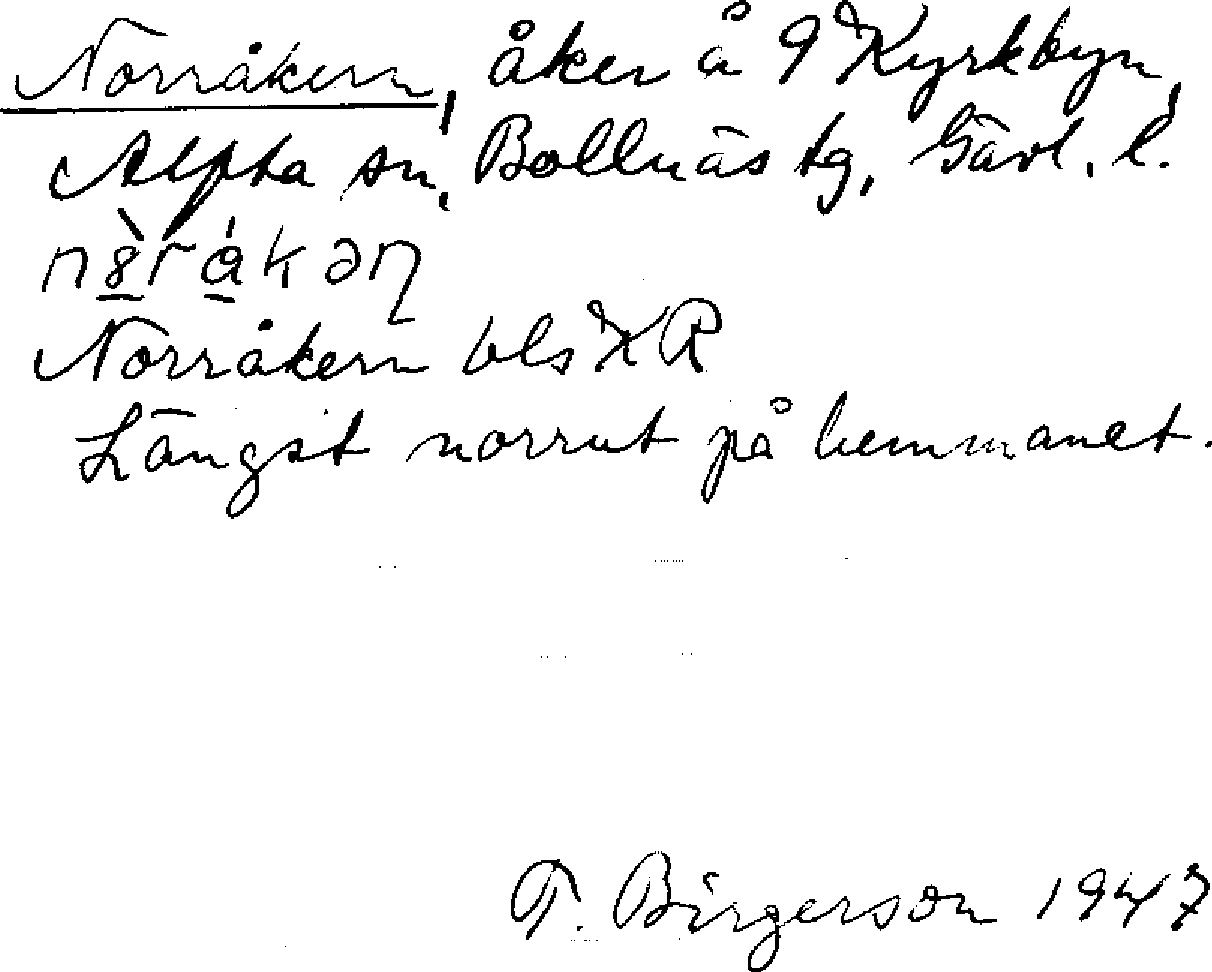 Norråkern, åker å 9 Kyrkbyn,
Alfta sn, Bollnäs tg, Gävl. l.
Norråkern bls
Längst norrut på hemmanet.
T. Birgerson 1947